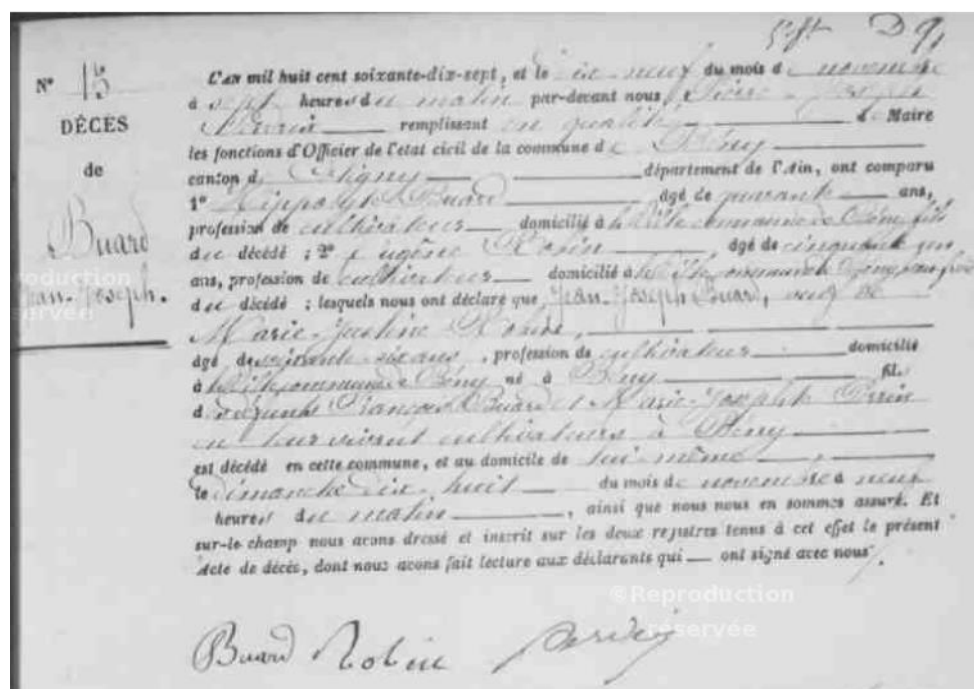 N° 15
DÉCÈS
de
Buard
Jean-Joseph.
L'An mil huit cent soixante-dix-sept, et le dix-neuf du mois de novembre
à sept heures du matin par-devant nous Pierre-Joseph
remplissant en qualité de Maire
les fonctions d'Officier de l'état civil de la commune de Bény
canton de Coligny département de l'Ain, ont comparu
1° Hippolyte Buard âgé de quarante ans,
profession de cultivateur domicilié à la dite commune de Bény fils
du décédé ; 2° Eugène Robin âgé de cinquante un
ans, profession de cultivateur domicilié à la dite commune de Bény
du décédé ; lesquels nous ont déclaré que Jean-Joseph Buard, veuf de
Marie-Justine Robin,
âgé de soixante six ans, profession de cultivateur domicilié
à la dite commune de Bény né à Bény fils
de défunts François Buard et Marie-Josephte Perrin
en leur vivant cultivateurs à Bény
est décédé en cette commune, et au domicile de lui-même
le dimanche dix-huit du mois de novembre à neuf
heures du matin, ainsi que nous nous en sommes assuré. Et
sur-le champ nous avons dressé et inscrit sur les deux registres tenus à cet effet le présent
Acte de décès, dont nous avons fait lecture aux déclarants qui ont signé avec nous.
©Reproduction
réservée
Buard Robin